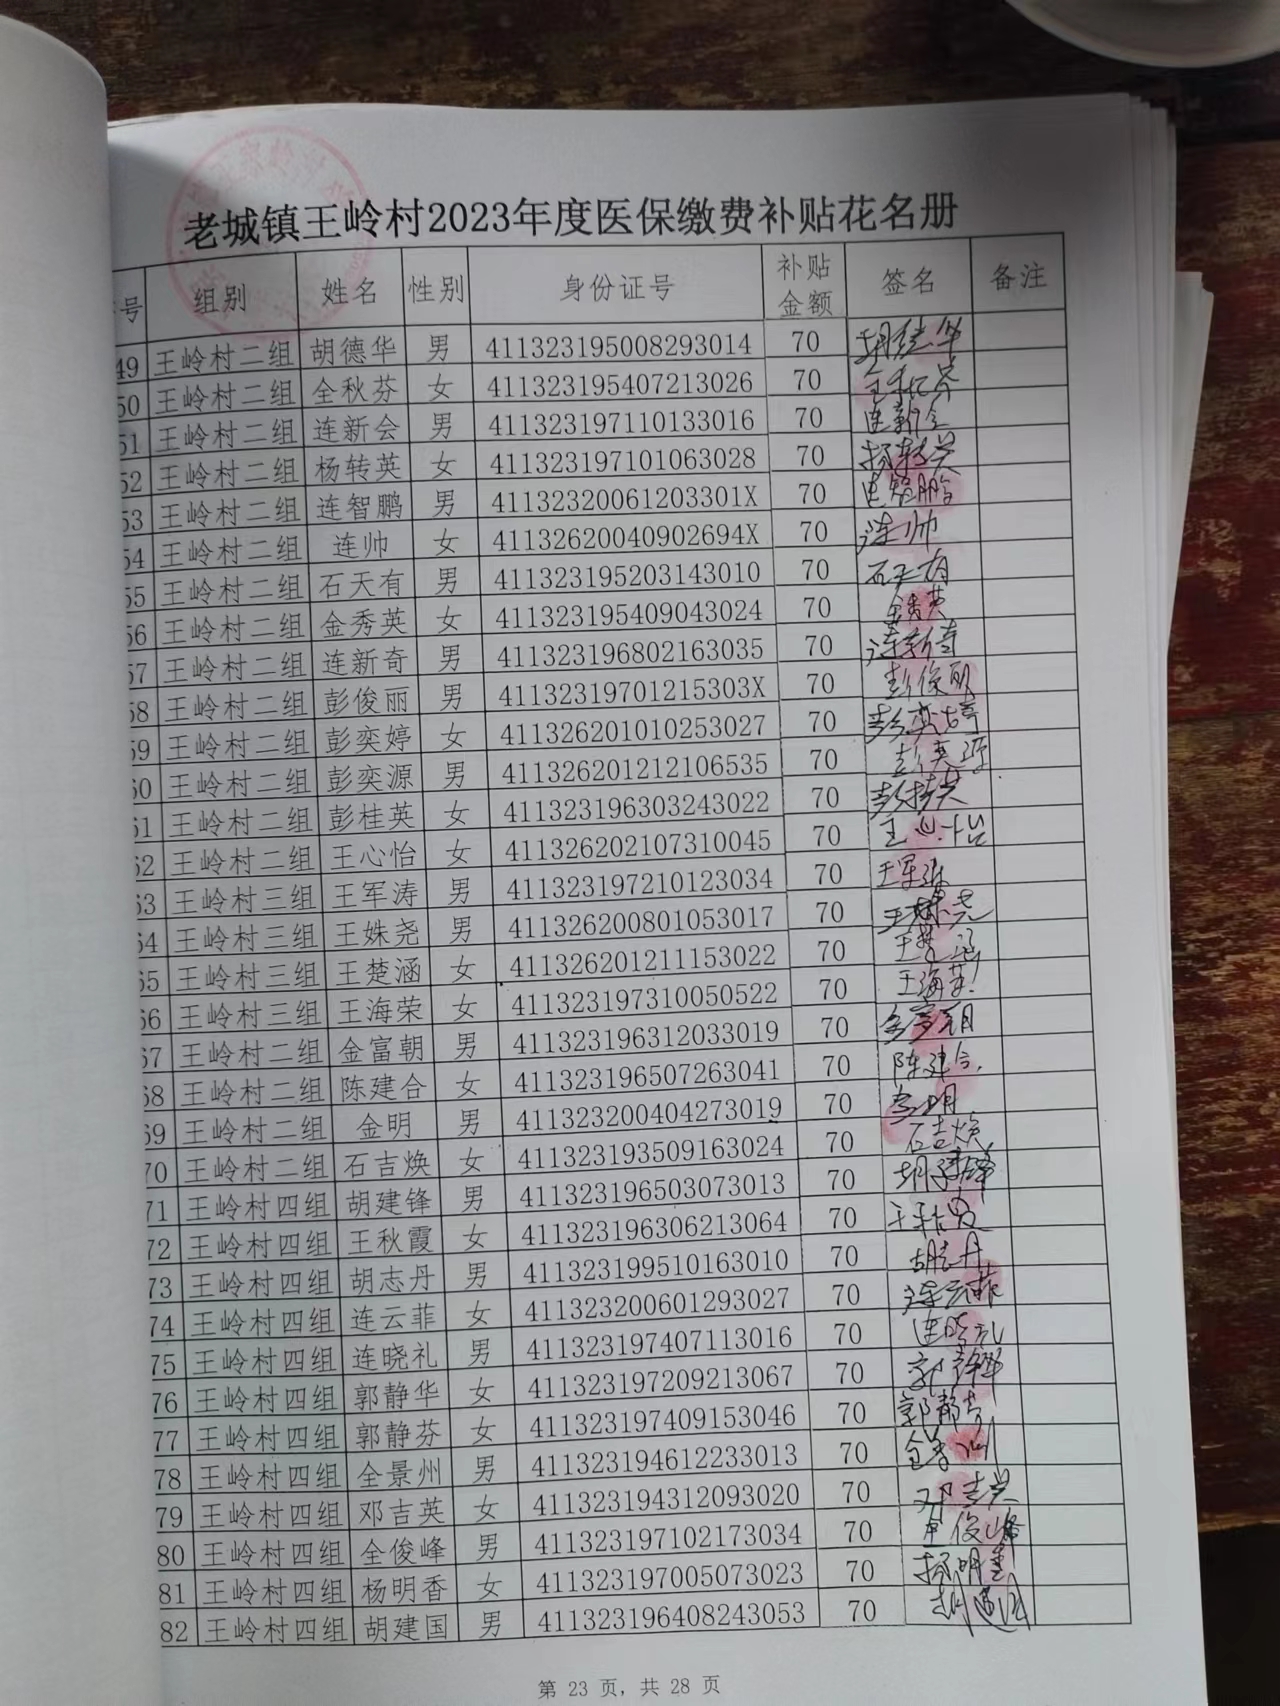 老城镇王岭村2023年度医保缴费补贴花名册
号 组别 姓名 性别 身份证号 补贴金额 签名 备注
49 王岭村二组 胡德华 男 411323195008293014 70 胡德华
50 王岭村二组 全秋芬 女 411323195407213026 70
51 王岭村二组 连新会 男 411323197110133016 70 连新会
52 王岭村二组 杨转英 女 411323197101063028 70 杨转英
53 王岭村二组 连智鹏 男 41132320061203301X 70 连智鹏
54 王岭村二组 连帅 女 41132620040902694X 70 连帅
55 王岭村二组 石天有 男 411323195203143010 70 石天有
56 王岭村二组 金秀英 女 411323195409043024 70 金秀英
57 王岭村二组 连新奇 男 411323196802163035 70 连新奇
58 王岭村二组 彭俊丽 男 41132319701215303X 70 彭俊丽
59 王岭村二组 彭奕婷 女 411326201010253027 70 彭奕婷
60 王岭村二组 彭奕源 男 411326201212106535 70 彭奕源
61 王岭村二组 彭桂英 女 411323196303243022 70 彭桂英
62 王岭村二组 王心怡 女 411326202107310045 70 王心怡
63 王岭村三组 王军涛 男 411323197210123034 70 王军涛
64 王岭村三组 王姝尧 男 411326200801053017 70 王姝尧
65 王岭村三组 王楚涵 女 411326201211153022 70 王楚涵
66 王岭村三组 王海荣 女 411323197310050522 70 王海荣
67 王岭村二组 金富朝 男 411323196312033019 70 金富朝
68 王岭村二组 陈建合 女 411323196507263041 70 陈建合
69 王岭村二组 金明 男 411323200404273019 70 金明
70 王岭村二组 石吉焕 女 411323193509163024 70 石吉焕
71 王岭村四组 胡建锋 男 411323196503073013 70 胡建锋
72 王岭村四组 王秋霞 女 411323196306213064 70
73 王岭村四组 胡志丹 男 411323199510163010 70 胡志丹
74 王岭村四组 连云菲 女 411323200601293027 70 连云菲
75 王岭村四组 连晓礼 男 411323197407113016 70 连晓礼
76 王岭村四组 郭静华 女 411323197209213067 70 郭静华
77 王岭村四组 郭静芬 女 411323197409153046 70 郭静芬
78 王岭村四组 全景州 男 411323194612233013 70
79 王岭村四组 邓吉英 女 411323194312093020 70 邓吉英
80 王岭村四组 全俊峰 男 411323197102173034 70
81 王岭村四组 杨明香 女 411323197005073023 70 杨明香
82 王岭村四组 胡建国 男 411323196408243053 70
第 23 页，共 28 页